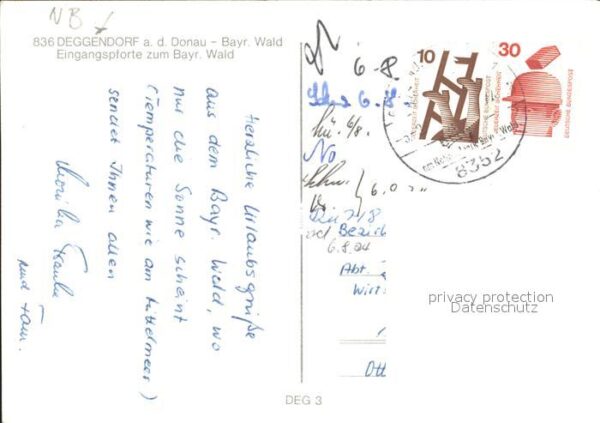 NB
836 DEGGENDORF a. d. Donau – Bayr. Wald
Eingangspforte zum Bayr. Wald
Herzliche Urlaubsgrüße
aus dem Bayr. Wald, wo
nur die Sonne scheint
(Temperaturen wie am Mittelmeer)
sendet Ihnen allen
Monika
und Fam.
6-8.
6-8.
6/8.
No
7/8
Bezirk
6.8.
Abt.
Wirt
Ott
10
DEUTSCHE BUNDESPOST
30
DEUTSCHE BUNDESPOST
8352
privacy protection
Datenschutz
DEG 3